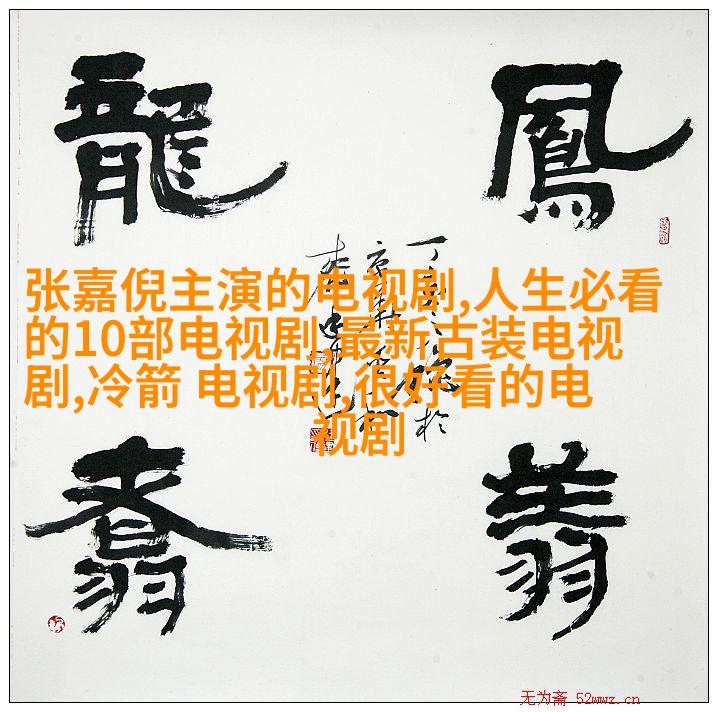 鳳
翔
龍
翥
张嘉倪主演的电视剧,人生必看
的10部电视剧,最新古装电视
剧,冷箭 电视剧,很好看的电
视剧
无为斋 52wwz.cn